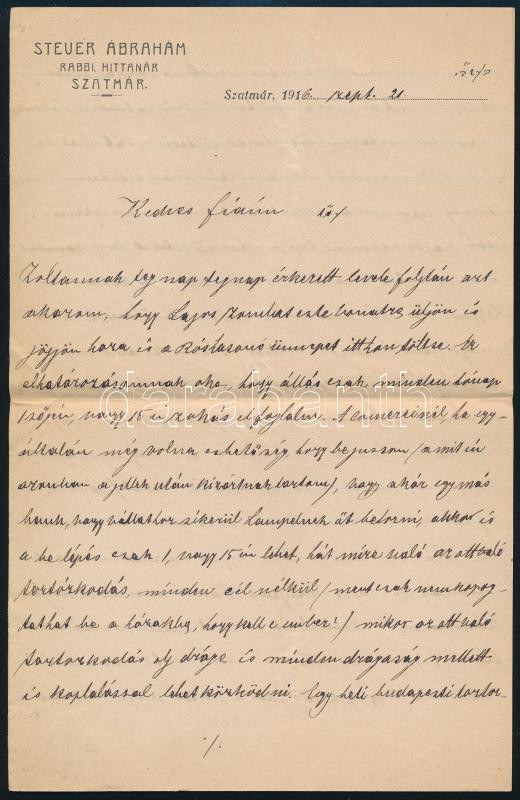 STEUER ÁBRAHÁM
RABBI, HITTANÁR
SZATMÁR.
Szatmár, 1916 szept. 21
Kedves fiaim
Zoltannak tegnap tegnap érkezett levele folytán azt
akarom, hogy Lajos Zombat este vonatra üljön és
jöjjön haza és a Róshasonó ünnepet itthon töltse. Ez
elhatározásomnak oka, hogy állás csak minden hónap
1 sőjén, vagy 15 én szokás elfoglalni. A ha egy-
általán még volna eshetőség hogy bejusson (a mit én
azonban a után kizártnak tartom), vagy akár egy más
bank, vagy vállathoz sikerül Lampelnek őt betenni, akkor is
a belépés csak 1, vagy 15 én lehet, hát mire való az ott való
tartózkodás, minden cél nélkül (mert csak nem kopog-
tathat be a házakba, hogy kell e ember!) mikor az ott való
tartozkodás oly drága és minden drágaság mellett
is koplalással lehet küzködni. Egy heti budapesti tartoz-
./.
darabanth